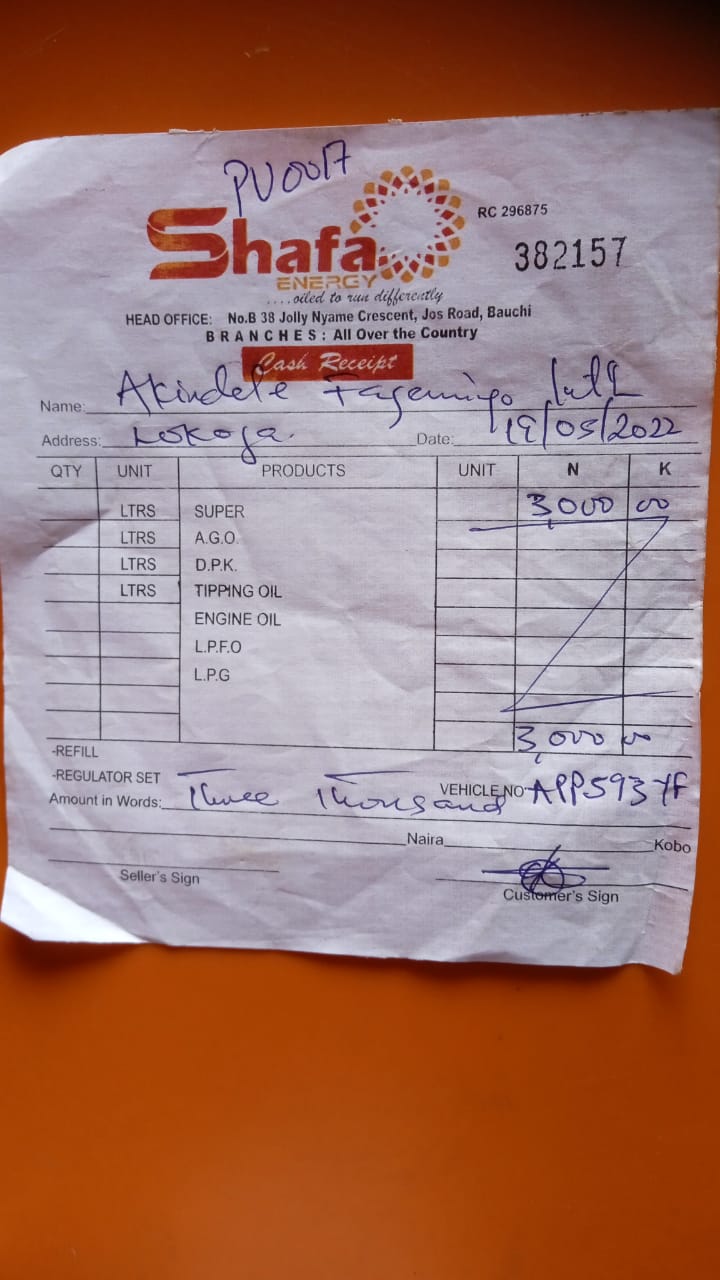 PV0017
Shafa
ENERGY
....oiled to run differently
RC 296875
382157
HEAD OFFICE: No.B 38 Jolly Nyame Crescent, Jos Road, Bauchi
BRANCHES: All Over the Country
Cash Receipt
Name: Akindele
Address: Lokoja. Date: 19/05/2022
QTY UNIT PRODUCTS UNIT N K
LTRS SUPER 3,000 00
LTRS A.G.O.
LTRS D.P.K.
LTRS TIPPING OIL
ENGINE OIL
L.P.F.O
L.P.G
3,000 00
-REFILL
-REGULATOR SET VEHICLE NO APP593YF
Amount in Words: Three Thousand
Naira Kobo
Seller's Sign Customer's Sign